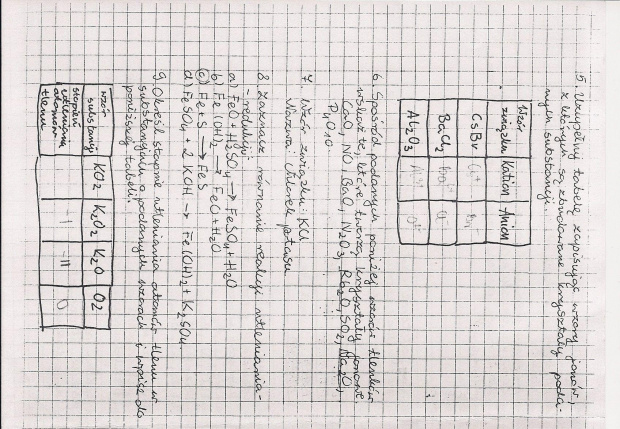 5. Uzupełnij tabelę zapisując wzory jonów,
z których są zbudowane kryształy poda-
nych substancji
Wzór związku Kation Anion
CsBr Cs+ Br-
BaCl2 Ba2+ Cl-
Al2O3 Al3+ O2-
6. Spośród podanych poniżej wzorów tlenków
wskaż te, które tworzą kryształy jonowe.
CaO, NO, BaO, N2O3, Rb2O, SO2, Na2O,
P4O10
7. Wzór związku: KCl
Nazwa: Chlorek potasu
8. Zaznacz równanie reakcji utleniania-
- redukcji
a) FeO + H2SO4 → FeSO4 + H2O
b) Fe(OH)2 → FeO + H2O
c) Fe + S → FeS
d) FeSO4 + 2 KOH → Fe(OH)2 + K2SO4
9. Określ stopnie utleniania atomów tlenu w
substancjach o podanych wzorach i wpisz do
poniższej tabeli:
wzór substancji KO2 K2O2 K2O O2
stopień utleniania atomów tlenu -I -II O